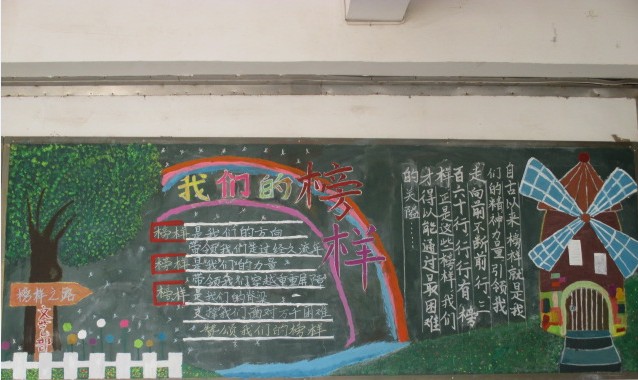 我们的榜样
榜样是我们的方向
带领我们走过经久流年
榜样是我们的力量
带领我们穿越重重屏障
榜样是我们的脊梁
支撑我们面对万千困难
歌颂我们的榜样
自古以来榜样就是我
们的精神力量引领我
走向前不断前行,三
百六十行,行行有榜
样正是这些榜样,我们
才得以能通过艰难
的关隘……
榜样之路
文学部